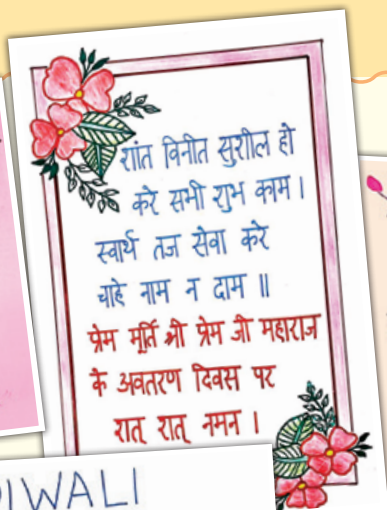 शांत विनीत सुशील हो
करे सभी शुभ काम।
स्वार्थ तज सेवा करे
चाहे नाम न दाम॥
प्रेम मूर्ति श्री प्रेम जी महाराज
के अवतरण दिवस पर
शत् शत् नमन।
DIWALI